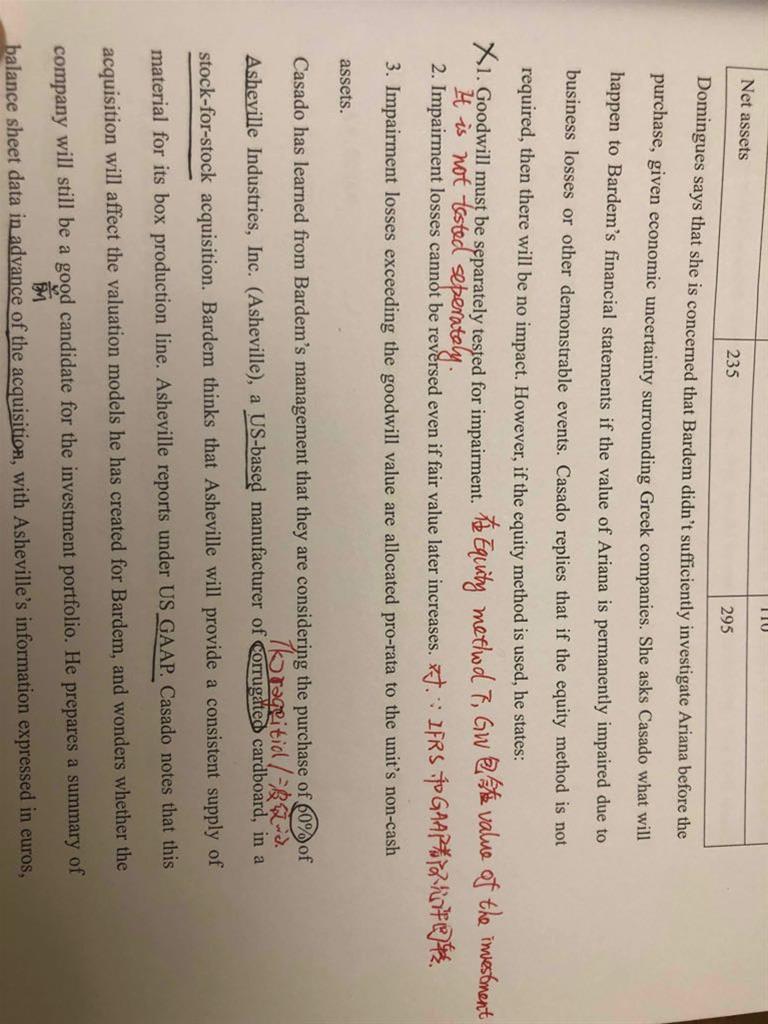 110
Net assets 235 295
Domingues says that she is concerned that Bardem didn't sufficiently investigate Ariana before the
purchase, given economic uncertainty surrounding Greek companies. She asks Casado what will
happen to Bardem's financial statements if the value of Ariana is permanently impaired due to
business losses or other demonstrable events. Casado replies that if the equity method is not
required, then there will be no impact. However, if the equity method is used, he states:
X 1. Goodwill must be separately tested for impairment. 在 Equity method 下, GW 包含在 value of the investment
It is not tested seperately.
2. Impairment losses cannot be reversed even if fair value later increases. 对. ∵ IFRS 和 GAAP都
3. Impairment losses exceeding the goodwill value are allocated pro-rata to the unit's non-cash
assets.
Casado has learned from Bardem's management that they are considering the purchase of 60% of
Asheville Industries, Inc. (Asheville), a US-based manufacturer of corrugated cardboard, in a
stock-for-stock acquisition. Bardem thinks that Asheville will provide a consistent supply of
material for its box production line. Asheville reports under US GAAP. Casado notes that this
acquisition will affect the valuation models he has created for Bardem, and wonders whether the
company will still be a good candidate for the investment portfolio. He prepares a summary of
balance sheet data in advance of the acquisition, with Asheville's information expressed in euros,